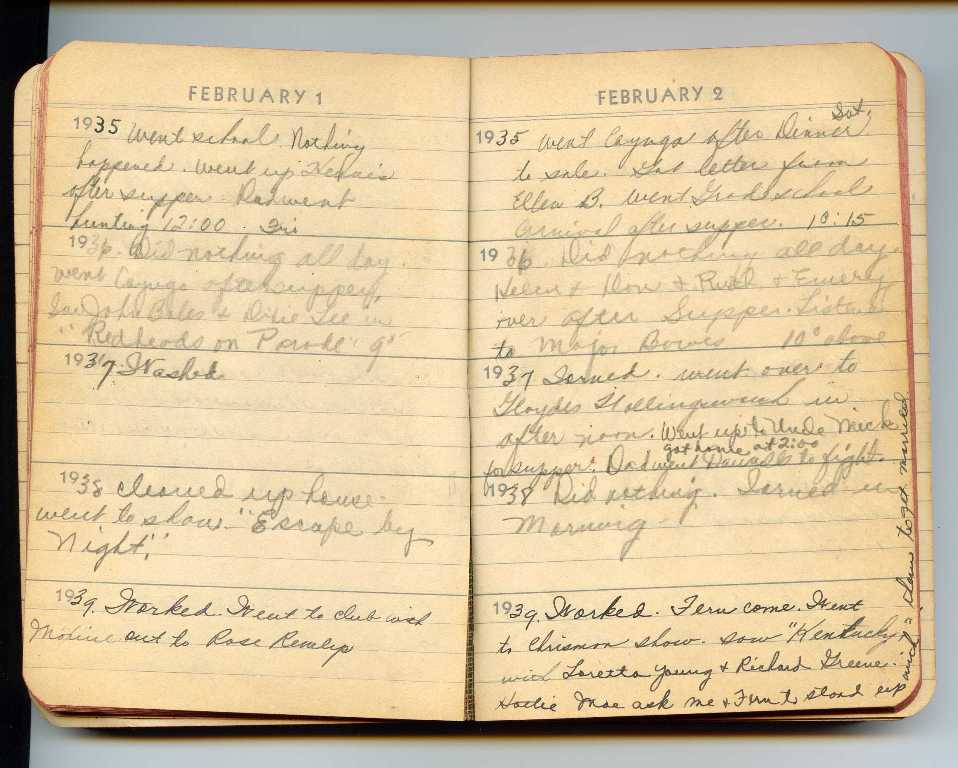 FEBRUARY 1
1935 Went school. Nothing
happened. Went up
after supper. Dad went
hunting 12:00. Fri
1936. Did nothing all day.
went Cayuga after supper,
Saw John Boles & Dixie Lee in
"Redheads on Parade" 9°
1937. Washed
1938 cleaned up house.
went to show. "Escape by
Night."
1939. Worked. Went to club with
Maxine out to Rose
FEBRUARY 2
Sat.
1935 Went Cayuga after Dinner
to sale. Got letter from
Ellen B. Went Grade school
Carnival after supper. 10:15
1936. Did nothing all day
Helen & Don & Ruth & Emery
over after Supper. Listened
to Major Bowes 10° above
1937 Ironed. went over to
Hollingsworth in
after noon. Went up to Uncle Mick
got home at 2:00
for supper. Dad went to fight.
1938 Did nothing. Ironed in
Morning
1939. Worked. Fern come. Went
to Chrisman show. saw "Kentucky"
with Loretta Young & Richard Greene.
Mae ask me & Fern t stand up
with
get married